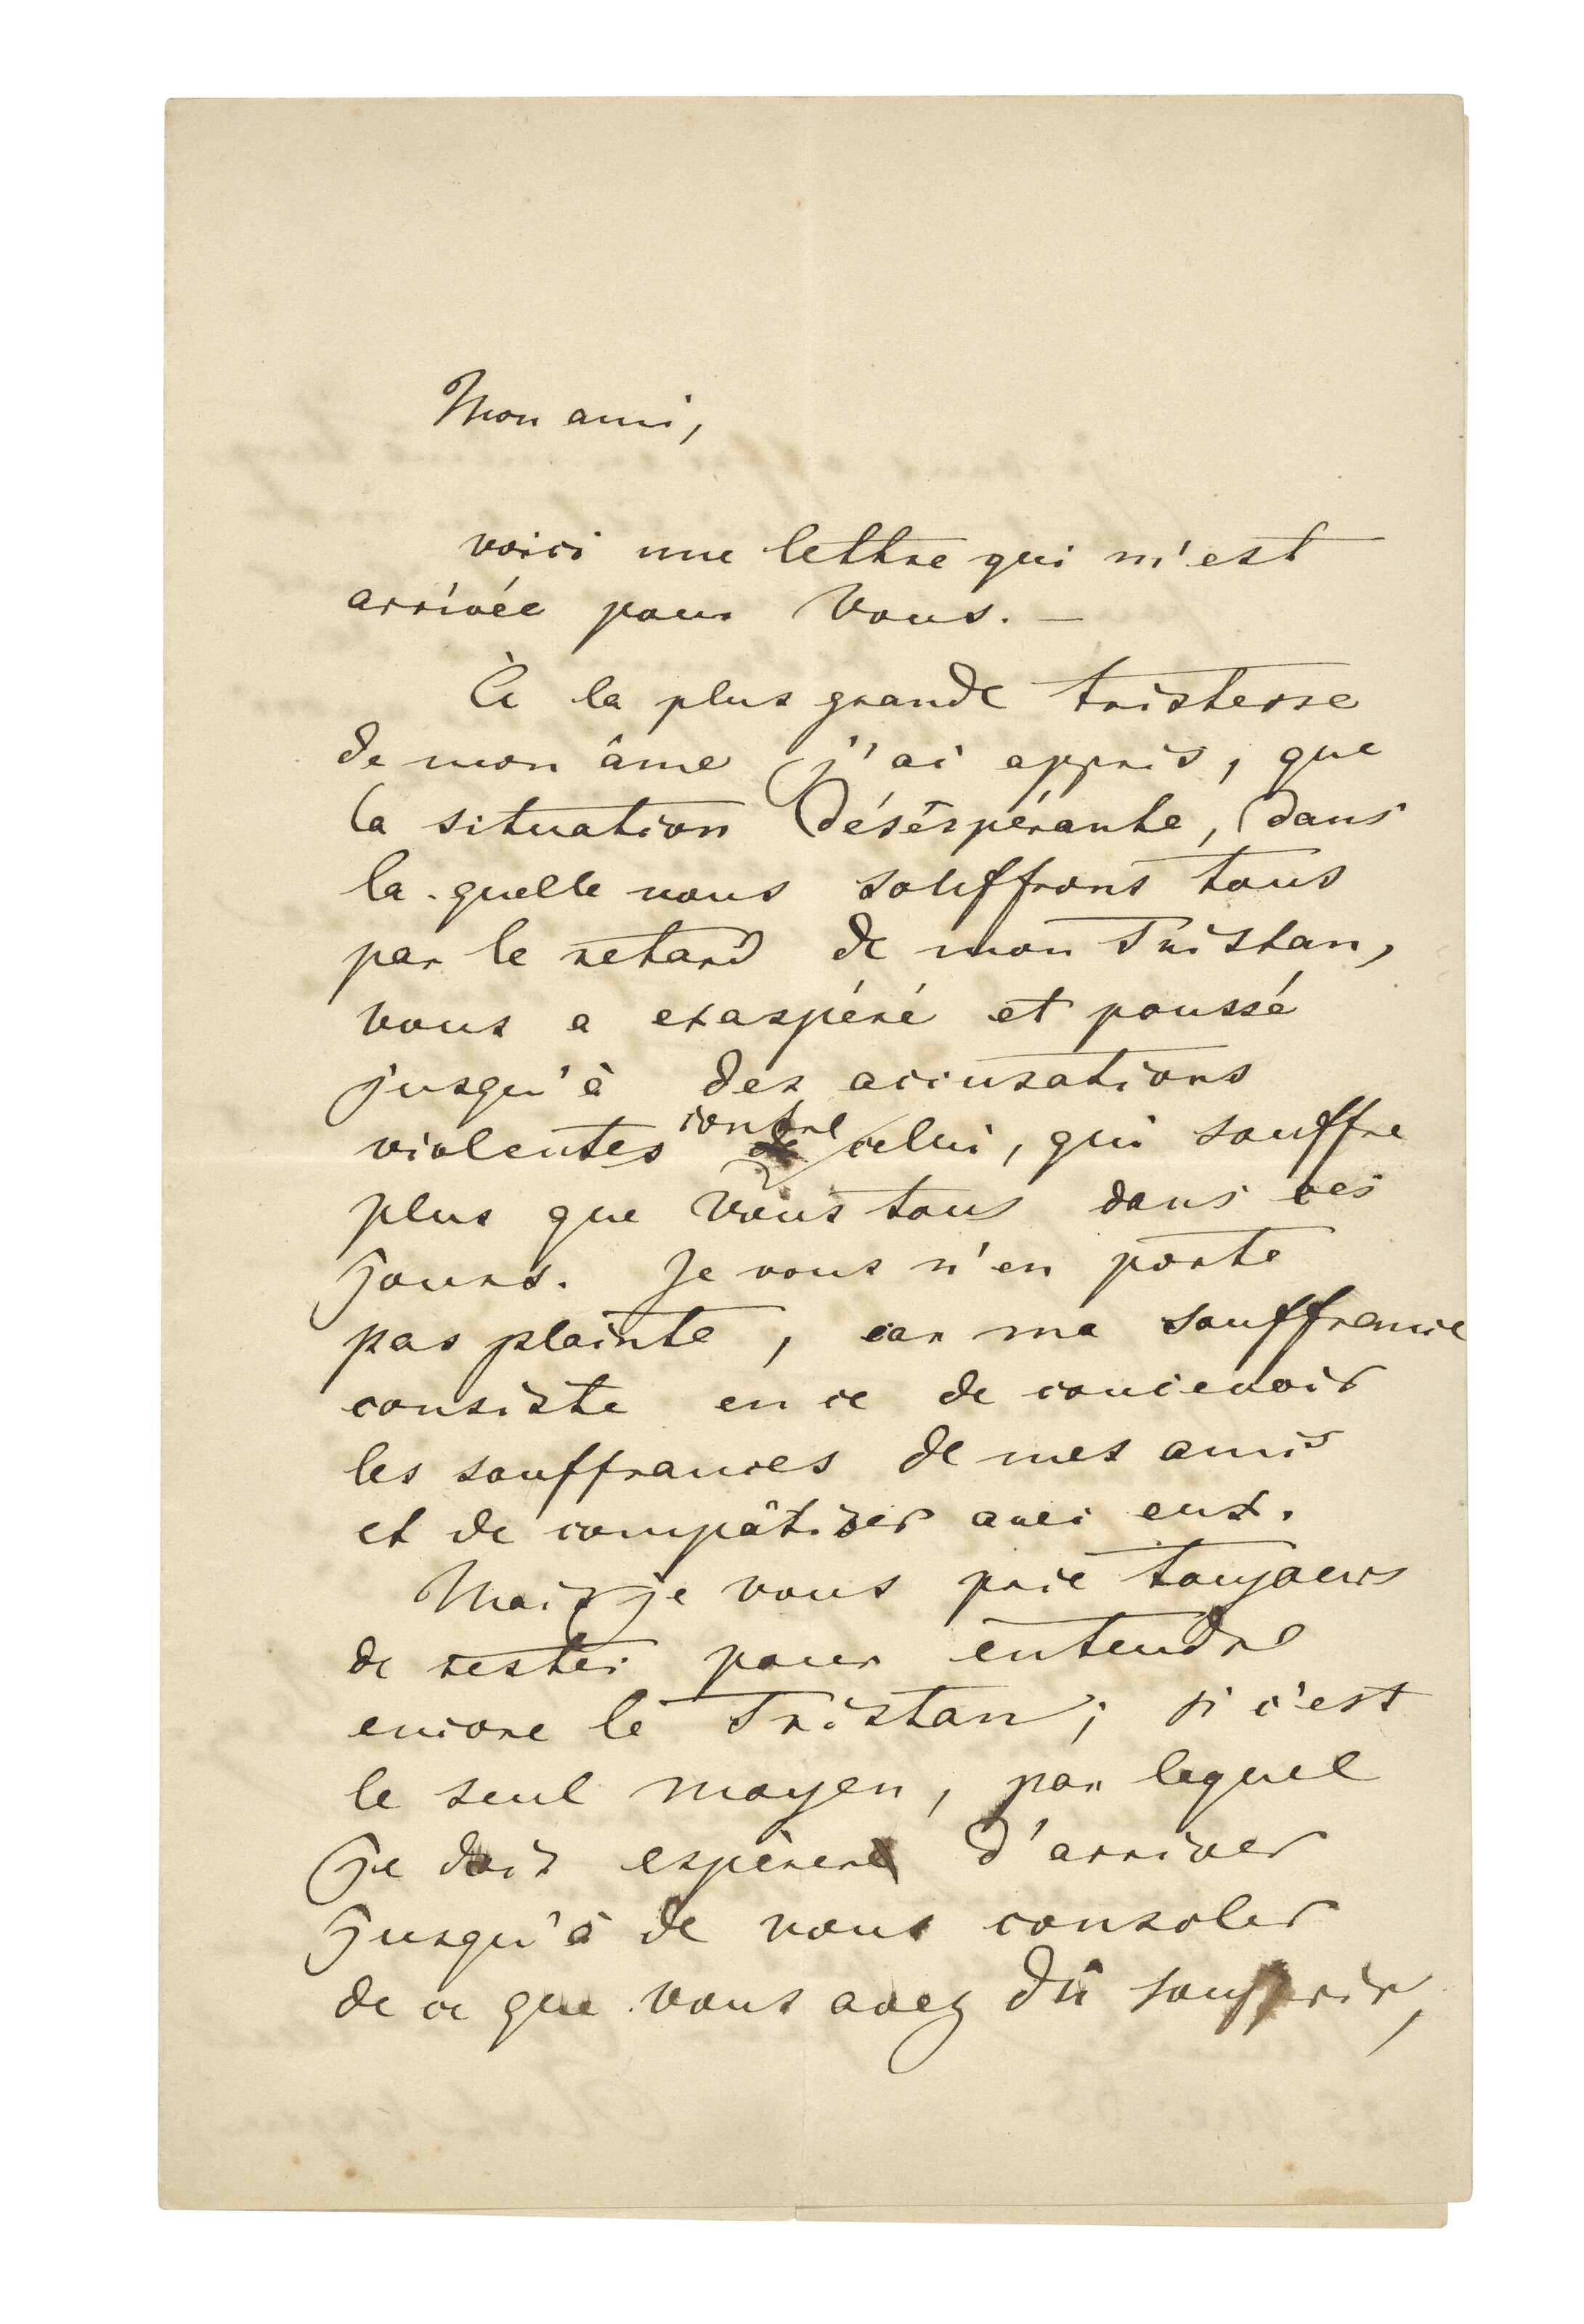 Mon ami,
voici une lettre qui m'est
arrivée pour Vous. —
À la plus grande tristesse
de mon âme j'ai appris, que
la situation déséspérante, dans
la-quelle nous souffrons tous
par le retard de mon Tristan,
vous a exaspéré et poussé
jusqu'à des accusations
violentes contre celui, qui souffre
plus que Vous tous dans ces
jours. Je vous n'en porte
pas plainte, car ma souffrance
consiste en ce de concevoir
les souffrances de mes amis
et de compâtiser avec eux.
Mais je vous prie toujours
de rester pour entendre
encore le Tristan; si c'est
le seul moyen, par lequel
je dois espérer d'arriver
jusqu'à de vous consoler
de ce que vous avez dû souffrir,